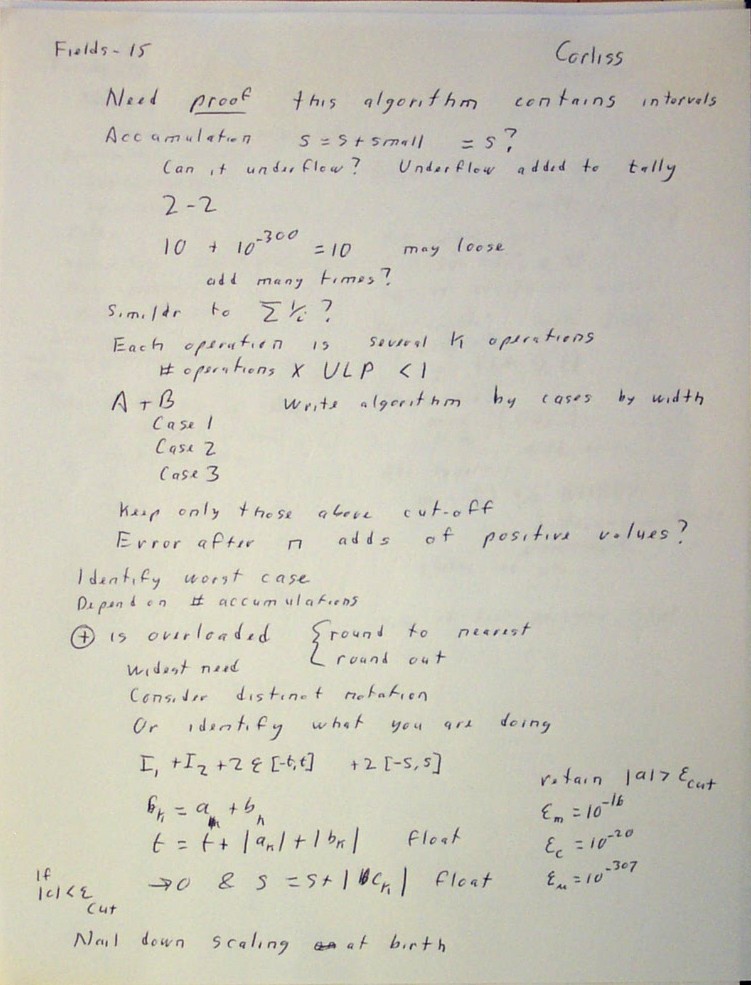 Fields-15 Corliss
Need proof this algorithm contains intervals
Accumulation s = s + small = s?
Can it underflow? Underflow added to tally
2-2
10 + 10^-300 = 10 may loose
add many times?
Similar to Σ 1/i ?
Each operation is several operations
# operations X ULP < 1
A + B Write algorithm by cases by width
Case 1
Case 2
Case 3
Keep only those above cut-off
Error after n adds of positive values?
Identify worst case
Depend on # accumulations
⊕ is overloaded { round to nearest
round out
Widest need
Consider distinct notation
Or identify what you are doing
I₁ + I₂ + 2 ε [-t,t] + 2 [-s,s]
retain |a| > ε_cut
= a + b
ε_m = 10^-16
t = t + |a_k| + |b_k| float
ε_c = 10^-20
If |c| < ε_cut → 0 & s = s + |c_k| float
ε_u = 10^-307
Nail down scaling at birth